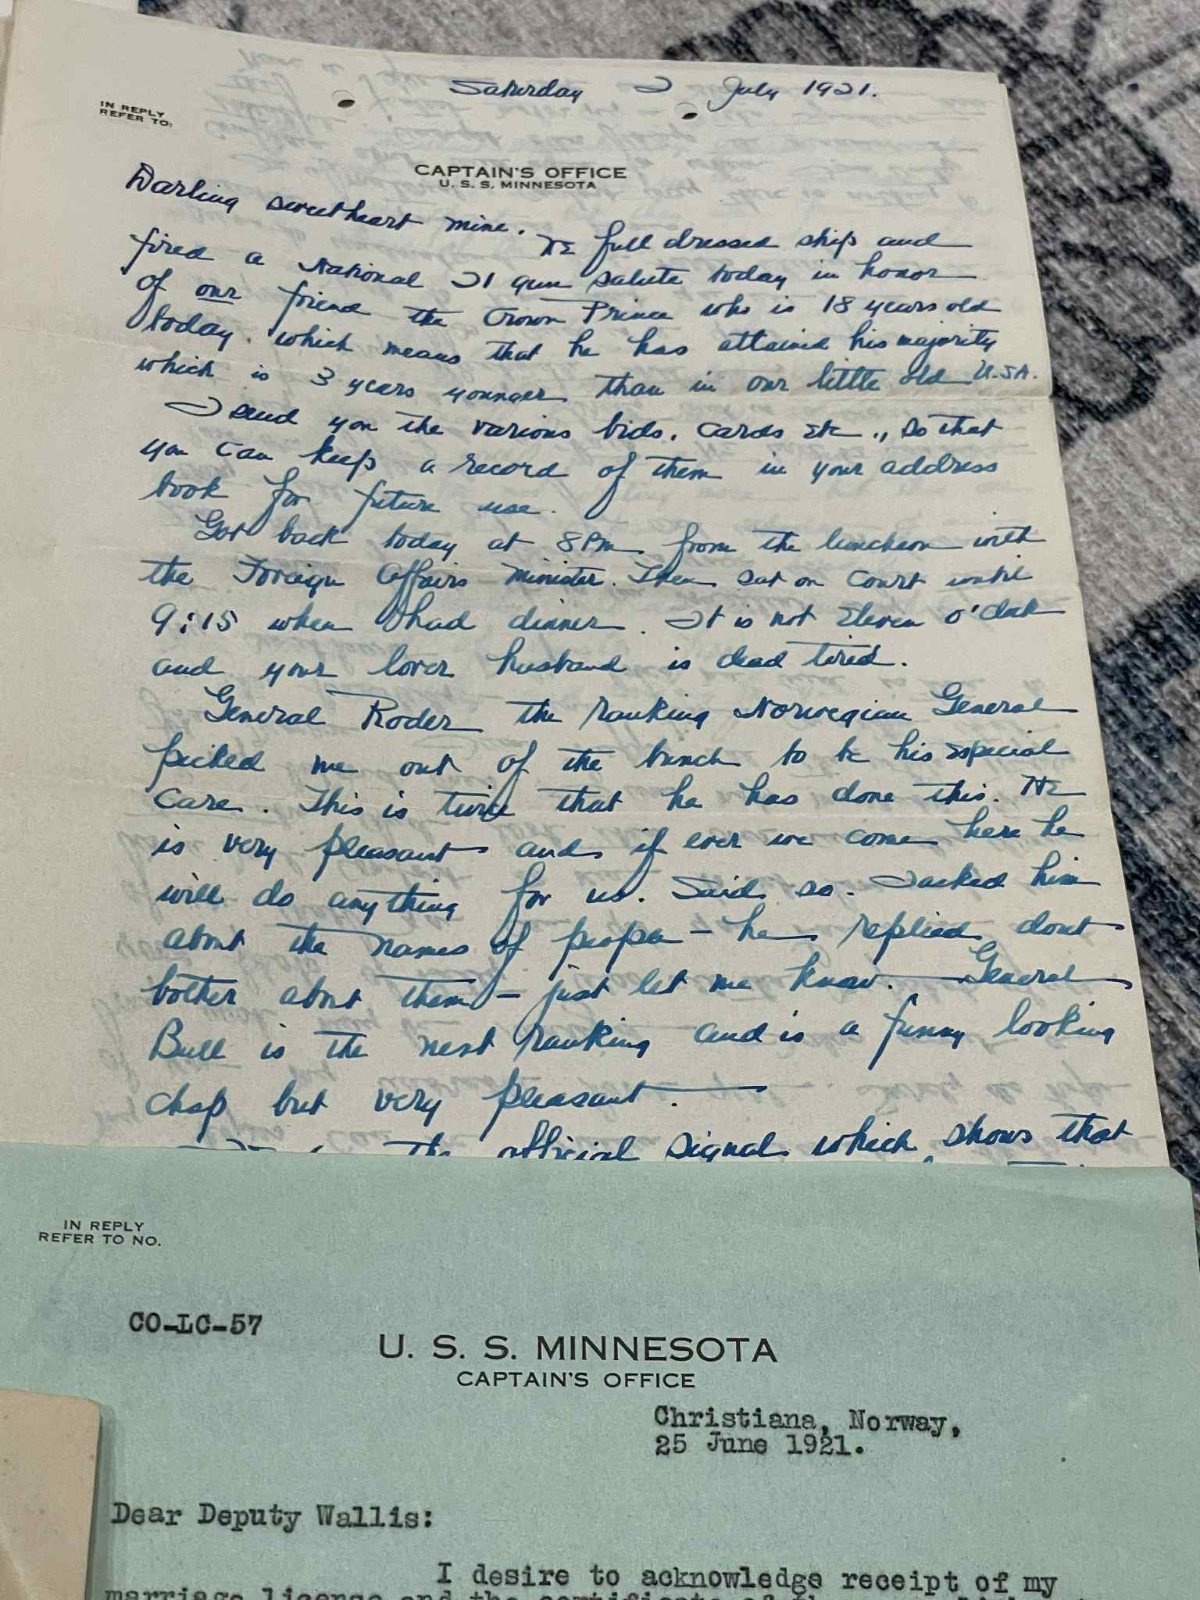 Saturday 2 July 1921.
IN REPLY
REFER TO:
CAPTAIN'S OFFICE
U. S. S. MINNESOTA
Darling sweetheart mine. We full dressed ship and
fired a National 21 gun salute today in honor
of our friend the Crown Prince who is 18 years old
today. which means that he has attained his majority
which is 3 years younger than in our little old U.S.A.
I send you the various bids, cards Etc., so that
you can keep a record of them in your address
book for future use.
Got back today at 8 Pm from the luncheon with
the Foreign Affairs Minister. Then sat on Court until
9:15 when I had dinner. It is not Eleven o'clock
and your lover husband is dead tired.
General Roder the ranking Norwegian General
picked me out of the bunch to be his especial
care. This is twice that he has done this. He
is very pleasant and if ever we come here he
will do anything for us. Said so. I asked him
about the names of people - he replied dont
bother about them - just let me know. General
Bull is the next ranking and is a funny looking
chap but very pleasant.
the official signal which shows that
IN REPLY
REFER TO NO.
CO-LC-57
U. S. S. MINNESOTA
CAPTAIN'S OFFICE
Christiana, Norway,
25 June 1921.
Dear Deputy Wallis:
I desire to acknowledge receipt of my
marriage license and the certificate of